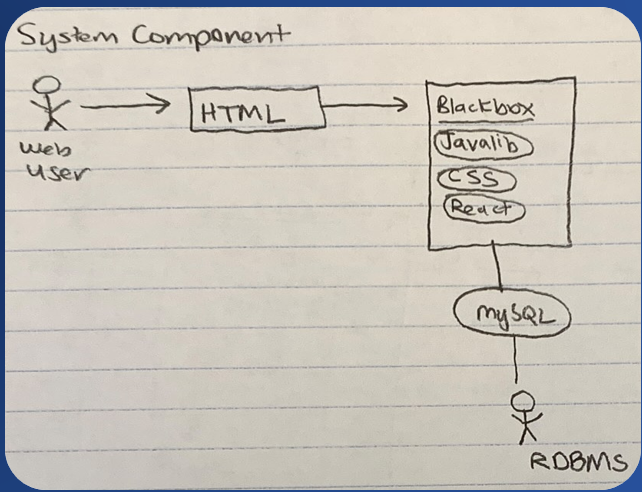 System Component
web
user
HTML
Blackbox
Javalib
CSS
React
mySQL
RDBMS